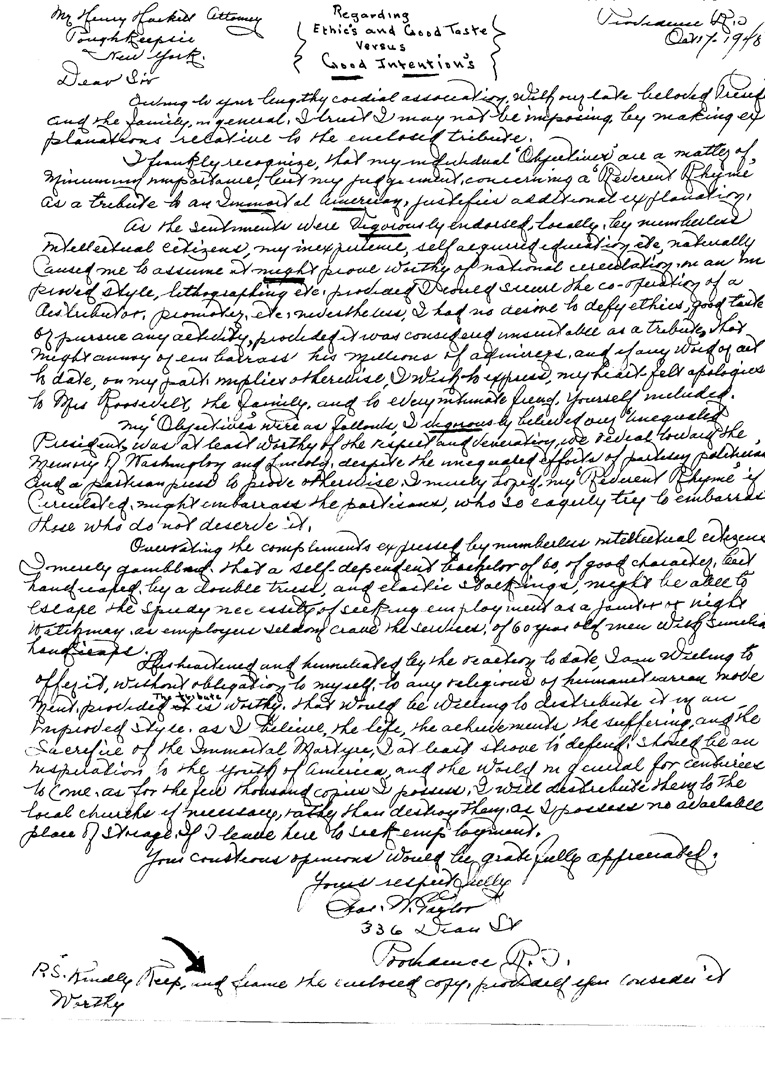 Mr Henry Hackett Attorney
Poughkeepsie
New York.
Regarding
Ethic's and Good Taste
Versus
Good Intention's
Providence R.I
Oct 17-1948
Dear Sir
Owing to your lengthy cordial association, with our late beloved Presid
and the family, in general, I trust I may not be imposing, by making ex
planations relative to the enclosed tribute.
I frankly recognize, that my individual "Objectives" are a matter of
minimum importance, but my judgement, concerning a "Reverent Rhyme"
as a tribute to an Immortal American, justifies additional explanation.
As the sentiments were vigorously endorsed, locally, by numberless
intellectual citizens, my inexperience, self acquired education etc, naturally
caused me to assume it might prove worthy of national circulation, in an im
proved style, lithographing etc. provided I could secure the co-operation of a
distributor, promoter, etc. nevertheless, I had no desire to defy ethics, good taste
or pursue any activity, provided it was considered unsuitable as a tribute, that
might annoy or embarrass his millions of admirers, and if any word or act
to date, on my part, implies otherwise, I wish to express, my heart felt apologies
to Mrs Roosevelt, the family, and to every intimate friend, yourself included.
My "Objectives" were as follows, I vigorously believed our "unequaled
President, was at least worthy of the respect and veneration, we reveal toward the
memory of Washington and Lincoln, despite the unequaled efforts of partisan politicians
and a partisan press to prove otherwise. I merely hoped, my "Reverent Rhyme" if
circulated, might embarrass the partisans, who so eagerly try to embarras
those who do not deserve it.
Overrating the compliments expressed by numberless intellectual citizens
I merely gambled, that a self dependent bachelor of 60, of good character, but
handicaped, by a double truss, and elastic stockings, might be able to
escape the speedy necessity of seeking employment as a janitor or night
watchman, as employers seldom crave the services, of 60 year old men with similar
handicaps.
Disheartened and humiliated by the reaction to date, I am willing to
offer it, without obligation to myself, to any religious or humanitarian move
ment, provided The tribute is worthy, that would be willing to distribute it in an
improved style, as I believe, the life, the achievements the suffering, and the
sacrifice of the Immortal Martyr, I at least strove to defend, should be an
inspiration to the youth of America, and the world in general for centuries
to come. as for the few thousand copies I possess, I will distribute them to the
local churchs if necessary, rather than destroy them, as I possess no available
place of storage, if I leave here to seek employment.
Your courteous opinions would be gratefully appreciated.
Yours respectfully
Chas. N. Taylor
336 Dean St
Providence R.I.
P.S. Kindly Keep, and frame the enclosed copy, provided you consider it
Worthy